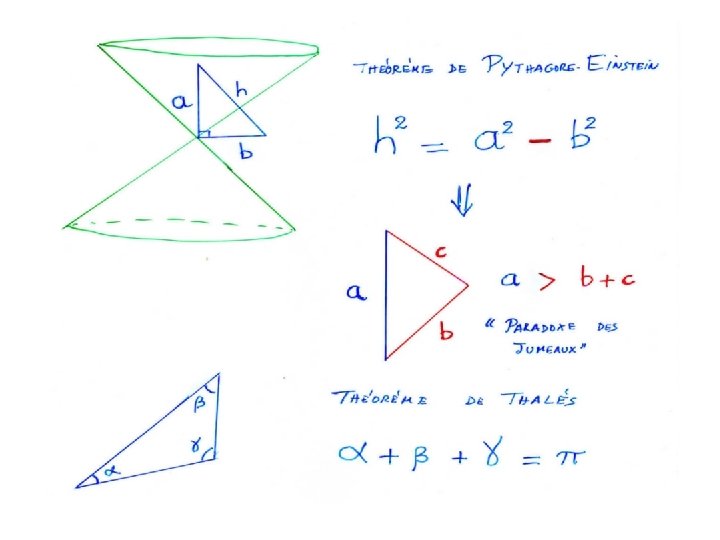 THÉORÈME DE PYTHAGORE-EINSTEIN
a
h
b
h² = a² - b²
⇓
c
a
b
a > b + c
"PARADOXE DES
JUMEAUX"
THÉORÈME DE THALÈS
β
γ
α
α + β + γ = π